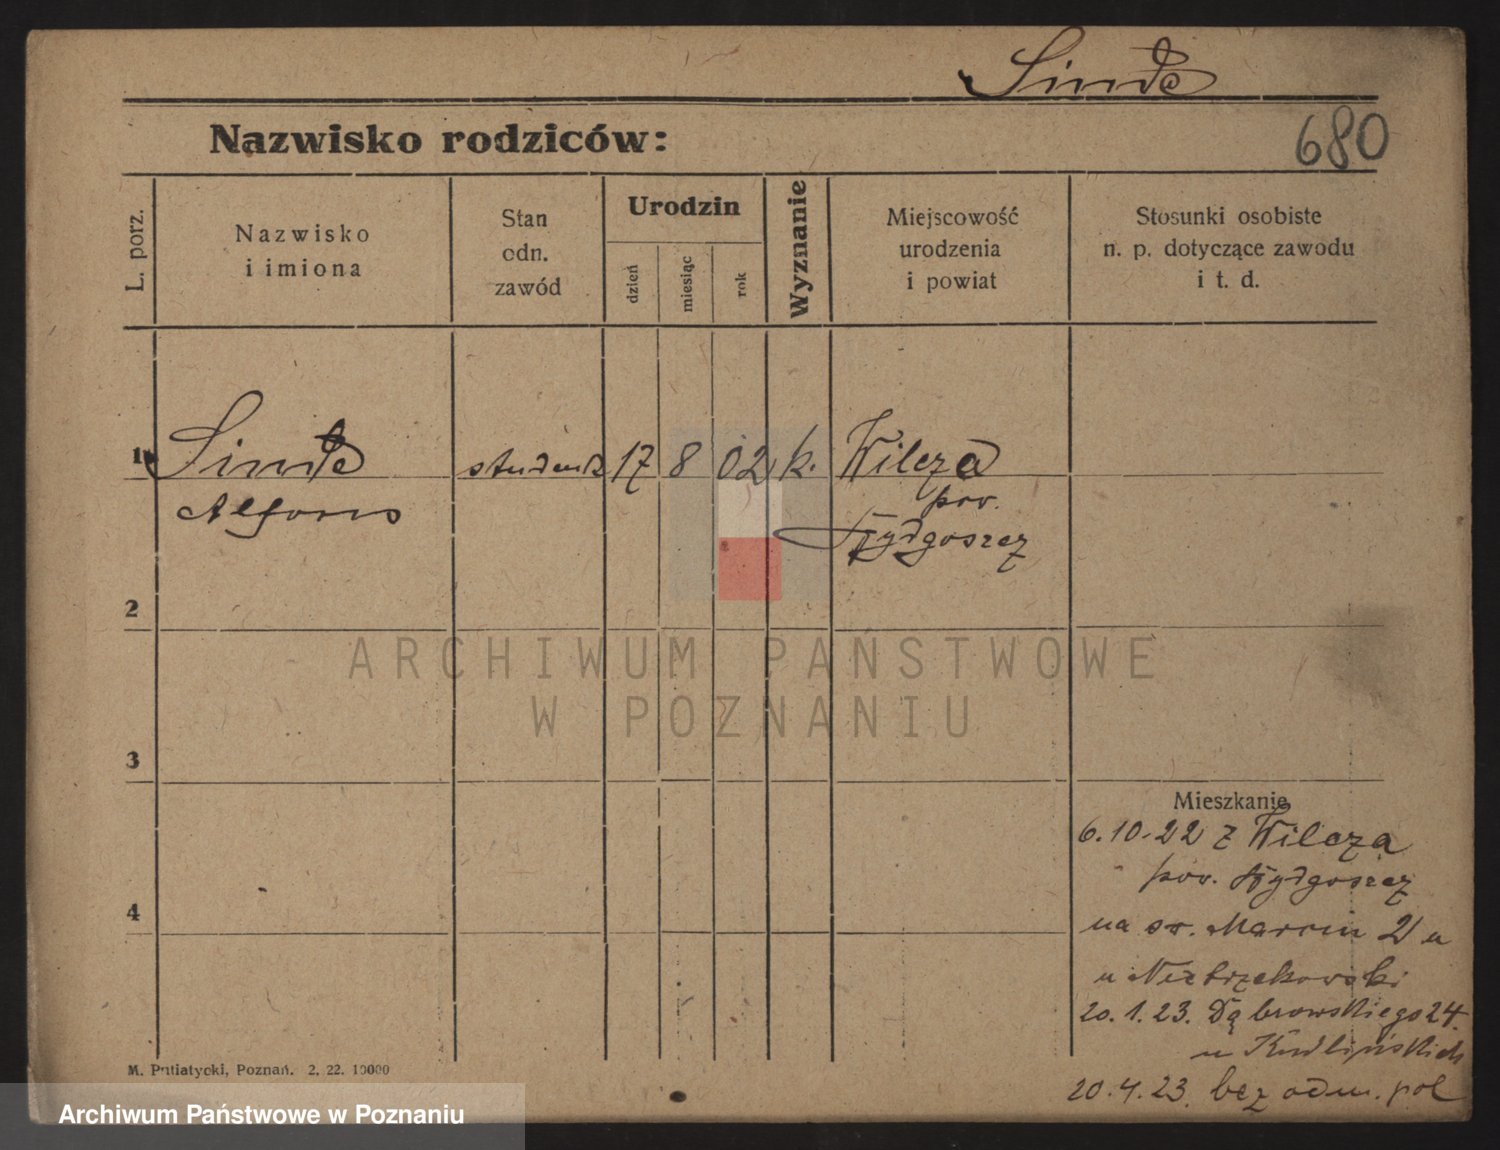 Sinde
680
Nazwisko rodziców:
L. porz.
Nazwisko
i imiona
Stan
odn.
zawód
Urodzin
dzień
miesiąc
rok
Wyznanie
Miejscowość
urodzenia
i powiat
Stosunki osobiste
n. p. dotyczące zawodu
i t. d.
1 Sinde student 17 8 02 k. Wilcza
Alfons pow.
Bydgoszcz
2
ARCHIWUM PAŃSTWOWE
W POZNANIU
3
Mieszkanie
6.10.22 z Wilcza
pow. Bydgoszcz
4
na św. Marcin 2
u
20.1.23. Dąbrowskiego 24.
u
20.4.23. bez odm. pol
M. Putiatycki, Poznań. 2. 22. 10000
Archiwum Państwowe w Poznaniu